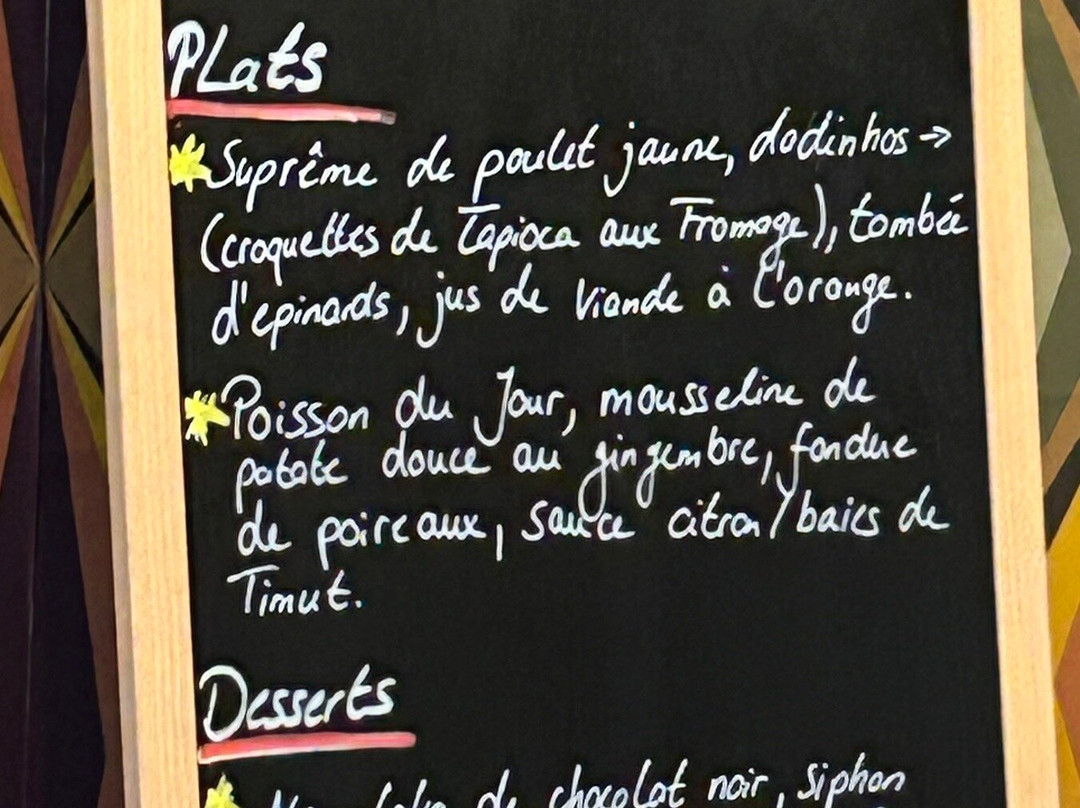 Plats
Suprême de poulet jaune, dadinhos →
(croquettes de Tapioca aux Fromage), tombée
d'epinards, jus de Viande à L'orange.
Poisson du Jour, mousseline de
patate douce au gingembre, fondue
de poireaux, sauce citron/baies de
Timut.
Desserts
de chocolat noir, siphon